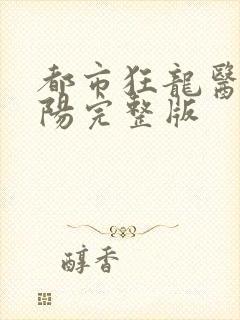 都市狂龍醫
陽完整版
醇香